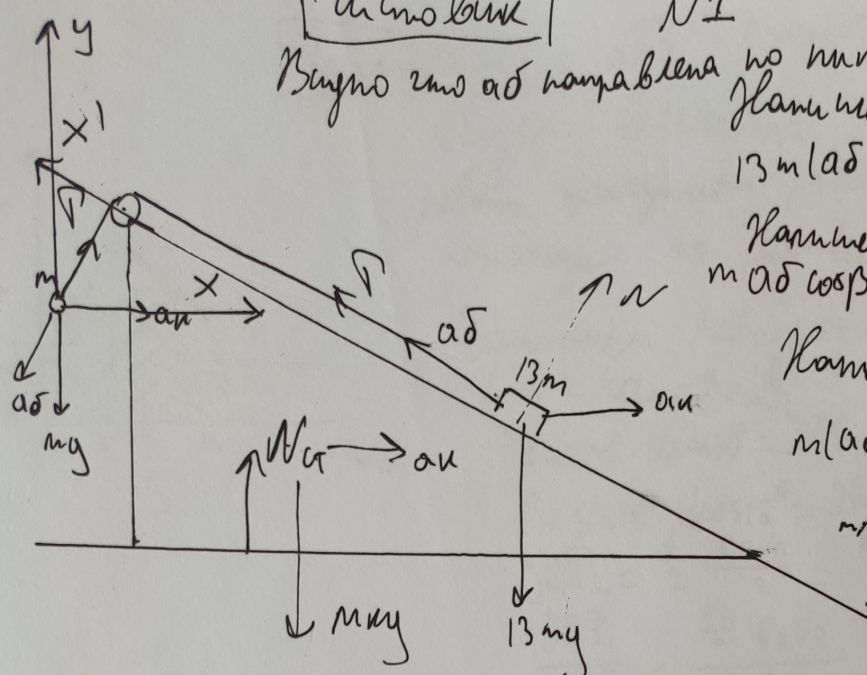 Чистовик N1
Видно что аб направлена по нит
Напиш
13m(аб
Напише
m аб cosβ
Нап
m(а
y
X'
T
m
X
ак
аб
mg
T
аб
13m
N
ак
N
ак
Mкg
13mg